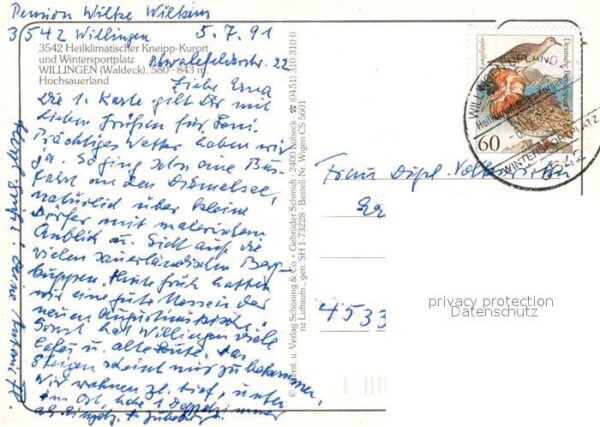 Pension Wilke Wilkens
3542 Willingen 5.7.91
3542 Heilklimatischer Kneipp-Kurort
und Wintersportplatz
WILLINGEN (Waldeck), 580–843 m,
Hochsauerland
22
Liebe Erna
Die 1. Karte gilt Dir mit
lieben Grüßen für Toni.
Prächtiges Wetter haben wir
ja. So ging schon eine Bus-
fahrt an den Diemelsee,
natürlich über kleine
Dörfer mit malerischem
Anblick u. Sicht auf die
vielen sauerländischen Berg-
kuppen. Heute früh hatten
wir eine gute Messe in der
neuen Augustinuskirche.
Sonst hat Willingen viele
Cafés u. alte Leute. Das
Steigen scheint mir zu bekommen.
Wir wohnen zl. tief, unten
im Ort, habe 1 Doppelzimmer
als
Herzl. Grüße! Deine
© Herst. u. Verlag Schöning & Co + Gebrüder Schmidt · 2400 Lübeck · ☎ (0451) 310 310 0
nz Luftaufn., gen. SH 1-73228 · Bestell-Nr. Wigen CS 5601
Kampfläufer
Deutsche Bundespost
60
WILLINGEN, UPLAND
WINTERSPORTPLATZ
Frau Dipl. Volkswirtin
4533
privacy protection
Datenschutz